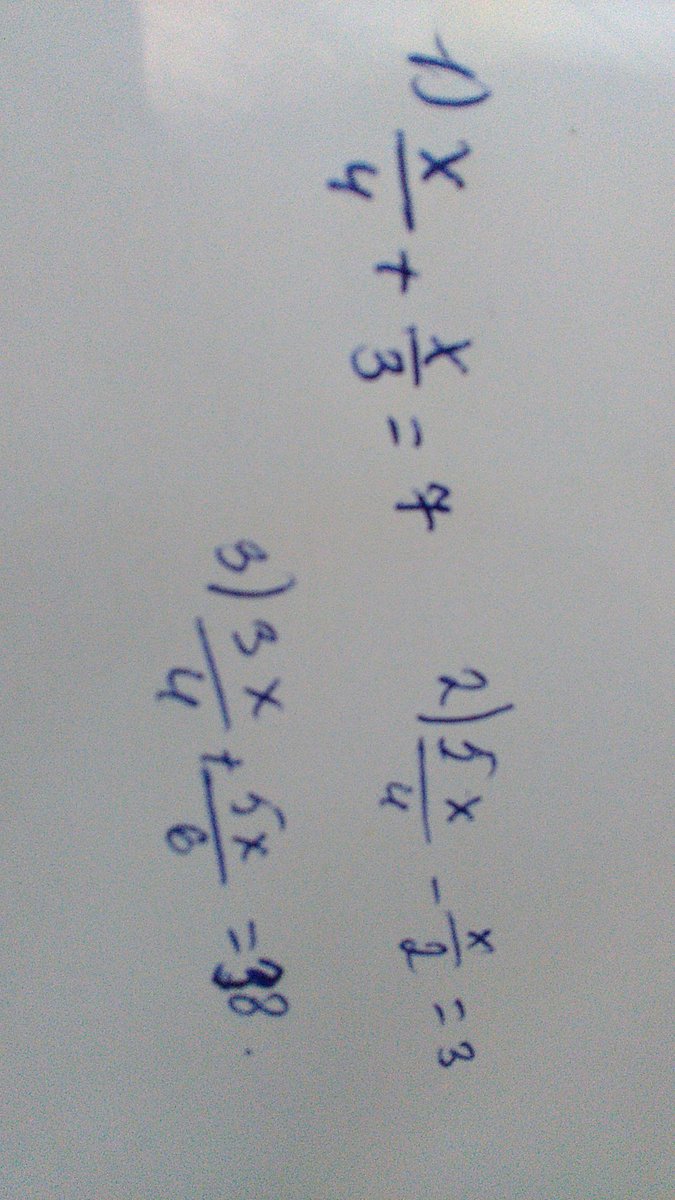 1) x/4 + x/3 = 7
2) 5x/4 - x/2 = 3
3) 3x/4 + 5x/6 = 38.